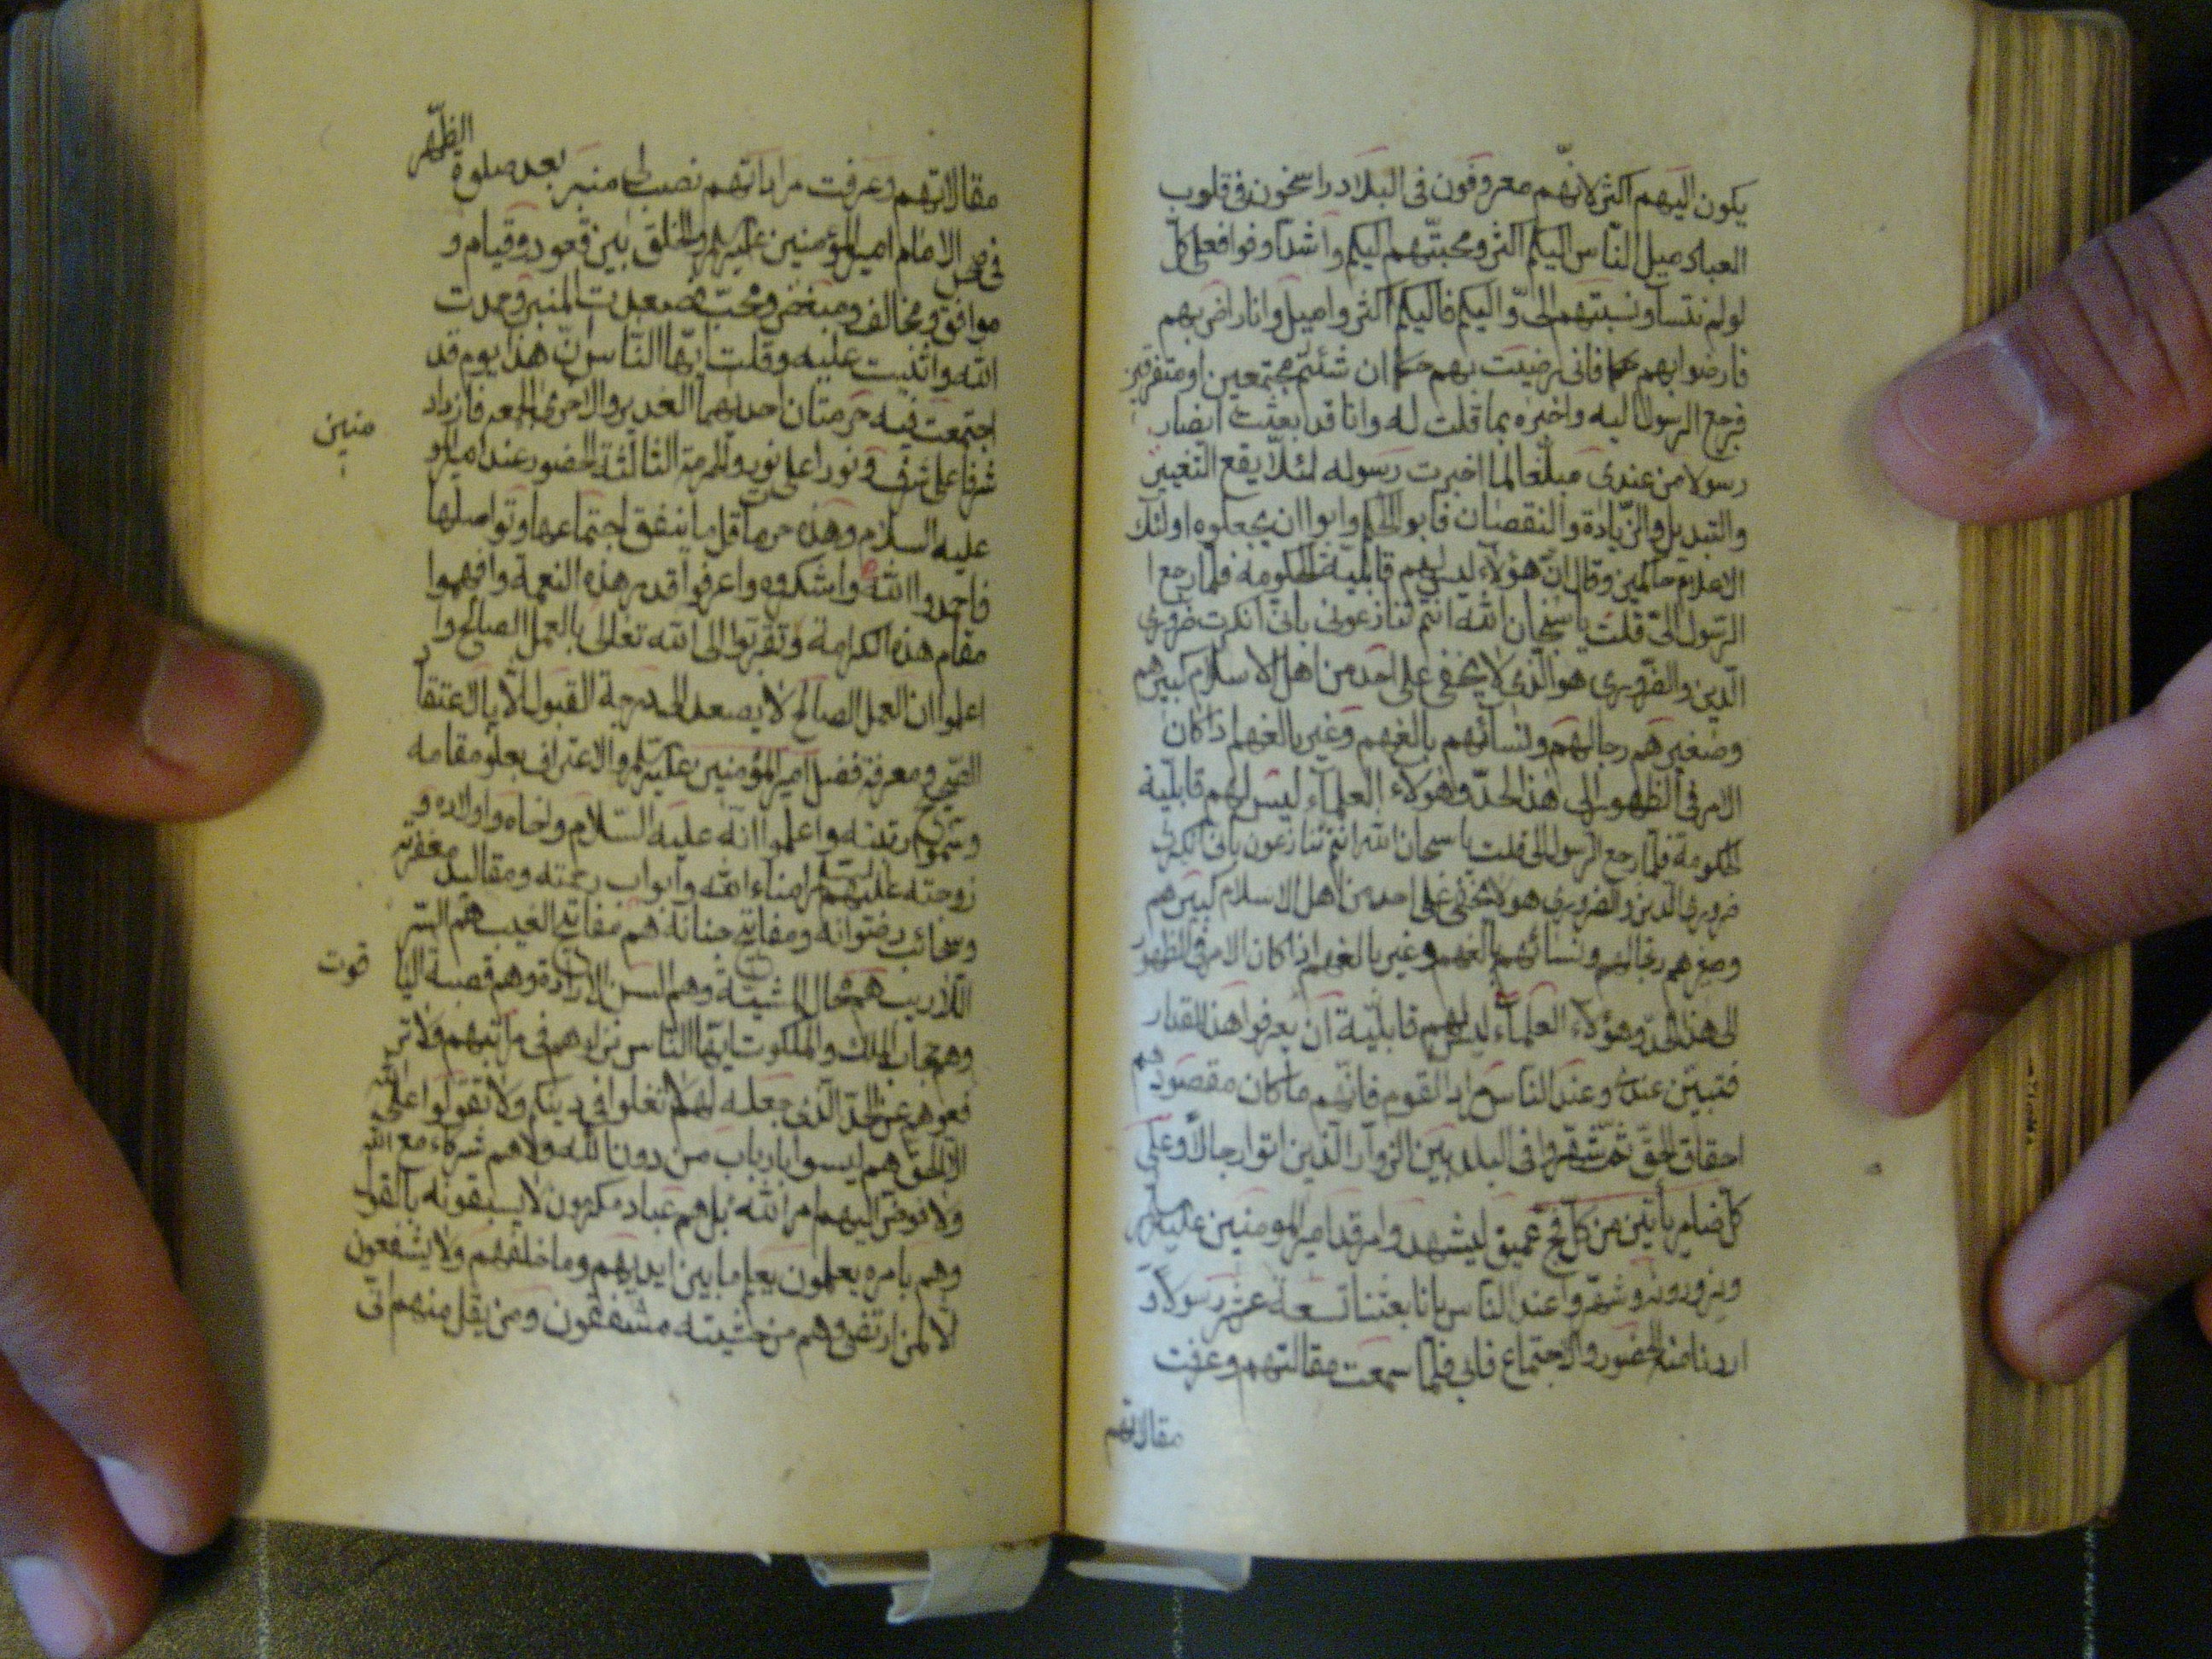 يكون اليهم اكثر لانهم معروفون فى البلاد راسخون فى قلوب
العباد وميل الناس اليكم اكثر ومحبتهم اليكم واشد اوفوا فعلى كل
لو لم نتساو نسبتهم الىّ واليكم فاليكم اكثر واميل وانا راض بهم
فارضوا بهم حكما فانى رضيت بهم حكما ان شئتم مجتمعين او متفرقين
فرجع الرسول اليه واخبره بما قلت له وانا قد بعثت ايضا
رسولا من عندى مبلغا لما اخبرت رسوله لئلا يقع التغيير
والتبديل والزيادة والنقصان فابوا الحكم وابوا ان يجعلوه اولئك
الاعلام حاكمين وقال ان هؤلاء ليس لهم قابلية الحكومة فلما رجع
الرسول الىّ قلت يا سبحان الله انتم تنازعونى بانى انكرت ضرورى
الدين والضرورى هو الذى لا يخفى على احد من اهل الاسلام كبيرهم
وصغيرهم رجالهم ونسائهم بالغهم وغير بالغهم اذا كان
الامر فى الظهور الى هذا الحدّ وهؤلاء العلماء ليس لهم قابلية
الحكومة فلما رجع الرسول الى قلت يا سبحان الله انتم تنازعون بانى انكرت
ضرورى الدين والضرورى هو لا يخفى على احد من اهل الاسلام كبيرهم
وصغيرهم رجالهم ونسائهم بالغهم وغير بالغهم اذا كان الامر فى الظهور
الى هذا الحدّ وهؤلاء العلماء ليس لهم قابلية ان يعرفوا هذا المقدار
فتبين عند وعند الناس مراد القوم فانهم ما كان مقصودهم
احقاق الحق ثم شهّروا فى البلد بين الزوار الذين اتوا رجالا وعلى
كل ضامر ياتين من كل فج عميق ليشهدوا مرقد امير المومنين عليه السلام
ويزورونه وشهّروا عند الناس بانا بعثنا تسعة عشر رسولا و
اردنا منه الحضور والاجتماع فابى فلما سمعت مقالتهم وعرفت
مقالاتهم
مقالاتهم وعرفت مراداتهم نصب لى منبر بعد صلوة الظهر
فى صحن الامام امير المؤمنين عليه السلام والخلق بين قعود وقيام و
موافق ومخالف ومبغض ومحبّ فصعدت المنبر وحمدت
الله واثنيت عليه وقلت ايها الناس انّ هذا يوم قد
اجتمعت فيه حرمتان احدهما الغدير والاخرى الجمعة فازداد
شرفا على شرف ونورا على نور والحرمة الثالثة الحضور عند امير المو
منين
عليه السلام وهذه حرما قل ما ينفق اجتماعها وتواصلها
فاحمدوا الله واشكروه واعرفوا قدر هذه النعمة وافهموا
مقام هذه الكرامة وتقربوا الى الله تعالى بالعمل الصالح و
اعلموا ان العمل الصالح لا يصعد الى درجة القبول الا بالاعتقاد
الصحيح ومعرفة فضل امير المؤمنين عليه السلام والاعتراف بعلو مقامه
وسموّ رتبته واعلموا انه عليه السلام واخاه واولاده و
زوجته عليهم السلام امناء الله وابواب رحمته ومقاليد مغفرته
وسحائب رضوانه ومفاتيح جنانه هم مفاتيح الغيب هم السّر
اللاريب هم محالّ المشية وهم السن الارادة وهم قصبة اليا
قوت
وهم حجاب الملك والملكوت ايها الناس نزلوهم فى مراتبهم ولا تر
فعوهم عن الحدّ الذى جعله لهم لا تغلوا فى دينكم ولا تقولوا على الله
الا الحق هم ليسوا بارباب من دون الله ولا هم شركاء مع الله
ولا فوض اليهم امر الله بل هم عباد مكرمون لا يسبقونه بالقول
وهم بامره يعملون يعلم ما بين ايديهم وما خلفهم ولا يشفعون
الا لمن ارتضى وهم من خشيته مشفقون ومن يقل منهم انى